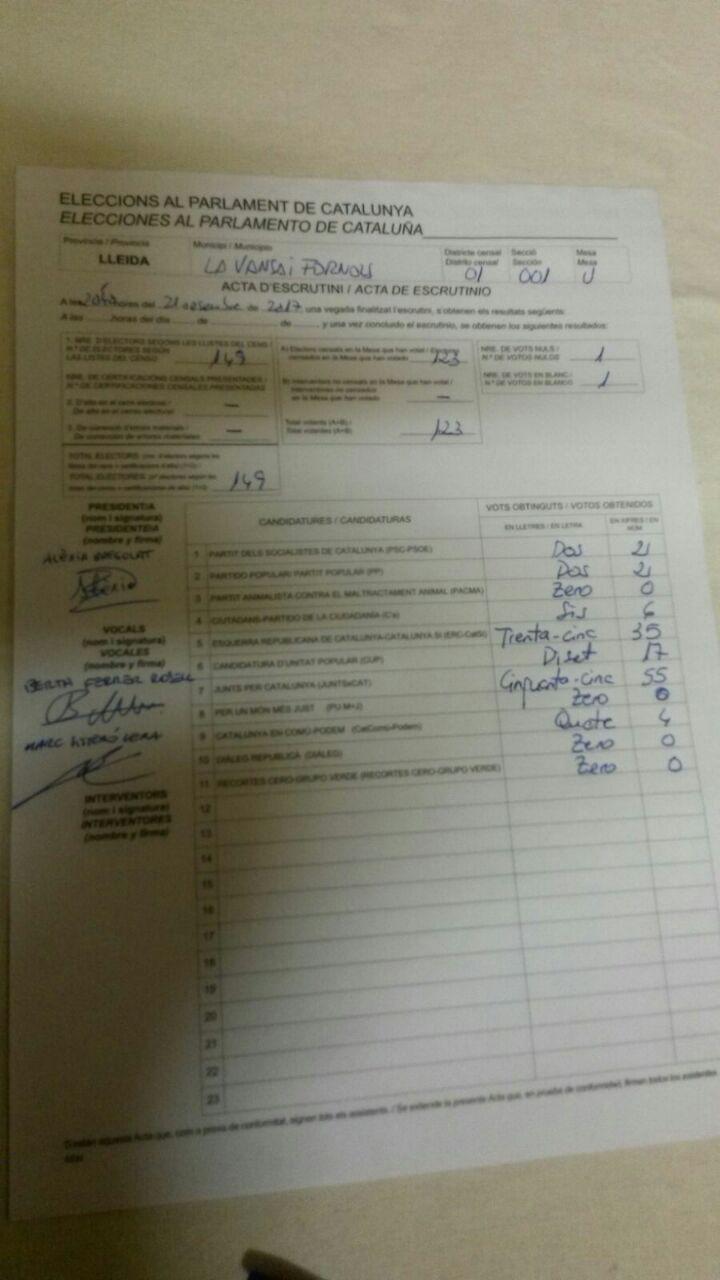 ELECCIONS AL PARLAMENT DE CATALUNYA
ELECCIONES AL PARLAMENTO DE CATALUÑA
Província / Provincia
LLEIDA
Municipi / Municipio
LA VANSA i FORNOLS
Districte censal
Distrito censal
01
Secció
Sección
001
Mesa
Mesa
U
ACTA D'ESCRUTINI / ACTA DE ESCRUTINIO
A les hores del 21 de 2017 una vegada finalitzat l'escrutini, s'obtenen els resultats següents:
A las horas del día de de , y una vez concluido el escrutinio, se obtienen los siguientes resultados:
1. NRE. D'ELECTORS SEGONS LES LLISTES DEL CENS
N.º DE ELECTORES SEGÚN
LAS LISTAS DEL CENSO 149
NRE. DE CERTIFICACIONS CENSALS PRESENTADES /
N.º DE CERTIFICACIONES CENSALES PRESENTADAS
2. D'alta en el cens electoral /
De alta en el censo electoral —
3. De correcció d'errors materials /
De corrección de errores materiales —
TOTAL ELECTORS
TOTAL ELECTORES 149
A) Electors censats en la Mesa que han votat / Electores
censados en la Mesa que han votado 123
B) Interventors no censats en la Mesa que han votat /
Interventores no censados
en la Mesa que han votado —
Total votants (A+B) /
Total votantes (A+B) 123
NRE. DE VOTS NULS /
N.º DE VOTOS NULOS 1
NRE. DE VOTS EN BLANC /
N.º DE VOTOS EN BLANCO 1
PRESIDENT/A
(nom i signatura)
PRESIDENTE/A
(nombre y firma)
VOCALS
(nom i signatura)
VOCALES
(nombre y firma)
BERTA FERRER
MARC
INTERVENTORS
(nom i signatura)
INTERVENTORES
(nombre y firma)
CANDIDATURES / CANDIDATURAS
VOTS OBTINGUTS / VOTOS OBTENIDOS
EN LLETRES / EN LETRA
EN XIFRES / EN NÚM.
1 PARTIT DELS SOCIALISTES DE CATALUNYA (PSC-PSOE) Dos 2
2 PARTIDO POPULAR/ PARTIT POPULAR (PP) Dos 2
3 PARTIT ANIMALISTA CONTRA EL MALTRACTAMENT ANIMAL (PACMA) Zero 0
4 CIUTADANS-PARTIDO DE LA CIUDADANÍA (C's) Sis 6
5 ESQUERRA REPUBLICANA DE CATALUNYA-CATALUNYA SÍ (ERC-CatSí) Trenta-cinc 35
6 CANDIDATURA D'UNITAT POPULAR (CUP) Diset 17
7 JUNTS PER CATALUNYA (JUNTSxCAT) Cinquanta-cinc 55
8 PER UN MÓN MÉS JUST (PUM+J) Zero 0
9 CATALUNYA EN COMÚ-PODEM (CatComú-Podem) Quatre 4
10 DIÀLEG REPUBLICÀ (DIÀLEG) Zero 0
11 RECORTES CERO-GRUPO VERDE (RECORTES CERO-GRUPO VERDE) Zero 0
12
13
14
15
16
17
18
19
20
21
22
23
S'estén aquesta Acta que, com a prova de conformitat, signen tots els assistents. / Se extiende la presente Acta que, en prueba de conformidad, firman todos los asistentes